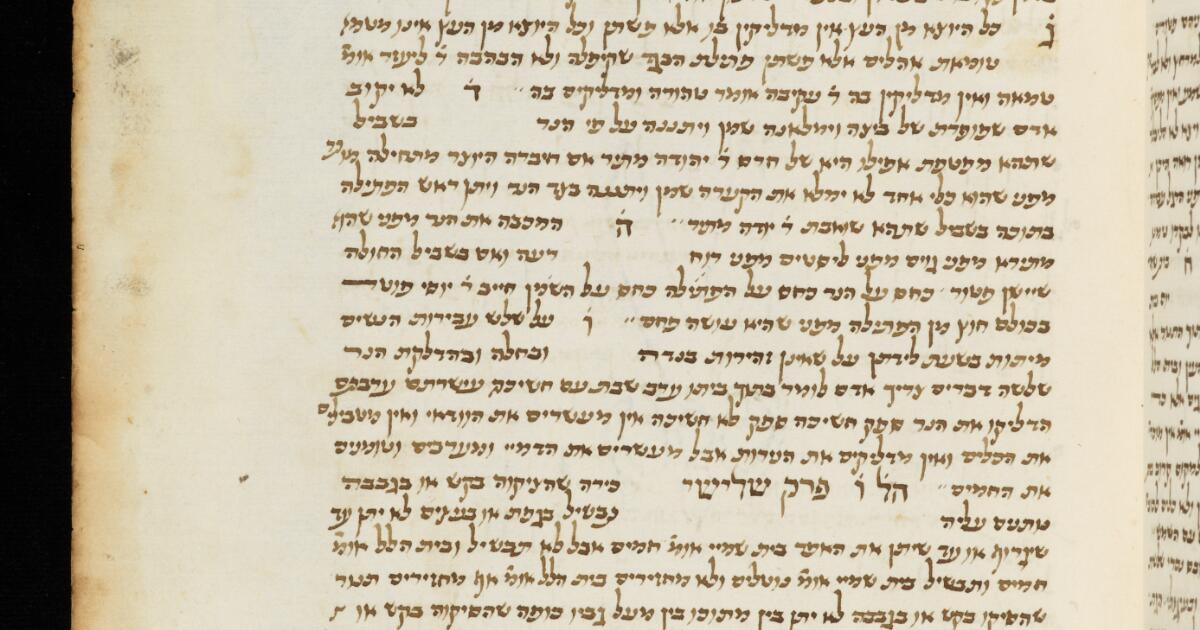 ג כל היוצא מן העץ אין מדליקין בו אלא פשתן וכל היוצא מן העץ אינו מטמא
טומאת אהלים אלא פשתן פתילת הבגד שקיפלה ולא הבהבה ר׳ ליעזר אומ׳
טמאה ואין מדליקין בה ר׳ עקיבה אומר טהורה ומדליקים בה ד לא יקוב
אדם שפופרת של ביצה וימלאנה שמן ויתננה על פי הנר בשביל
שתהא מנטפת אפילו היא של חרס ר׳ יהודה מתיר אם חיברה היוצר מתחילה מותר
מפני שהוא כלי אחד לא ימלא את הקערה שמן ויתננה בצד הנר ויתן ראש הפתילה
בתוכה בשביל שתהא שואבת ר׳ יודה מתיר ה המכבה את הנר מפני שהוא
מתירא מפני גוים מפני ליסטים מפני רוח רעה ואם בשביל החולה
שיישן פטור כחס על הנר כחס על הפתילה כחס על השמן חייב ר׳ יוסי פוטר
בכולם חוץ מן הפתילה מפני שהיא עושה פחם ו על שלש עבירות הנשים
מיתות בשעת לידתן על שאינן זהירות בנדה ובחלה ובהדלקת הנר
שלשה דברים צריך אדם לומר בתוך ביתו ערב שבת עם חשיכה עישרתם ערבתם
הדליקו את הנר ספק חשיכה ספק לא חשיכה אין מעשרים את הוודאי ואין מטבילים
את הכלים ואין מדליקים את הנרות אבל מעשרים את הדמיי ומערבים וטומנים
את החמים הל׳ ו׳ פרק שלישי כירה שהציקוה בקש או בגבבה
נותנים עליה תבשיל בגפת או בעצים לא יתן עד
שיגרוף או עד שיתן את האפר בית שמיי אומ׳ חמים אבל לא תבשיל ובית הלל אומ׳
חמים ותבשיל בית שמיי אומ׳ נוטלים ולא מחזירים בית הלל אומ׳ אף מחזירים תנור
שהסיקו בקש או בגבבה לא יתן בין מתוכו בין מעל גביו כופח שהסיקוה בקש או